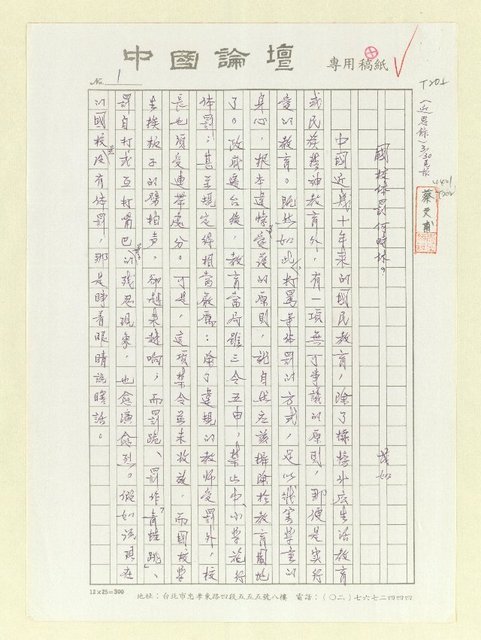 中國論壇
專用稿紙
№ 1
T202
國校体罰何時休？
茂如
中國近幾十年來的國民教育，除了標榜外應生活教育
或民族精神教育外，有一項無可爭議的原則，那便是實行
愛的教育。既然如此，打罵等体罰的方式，足以戕害學童的
身心，根本違悖愛護的原則，就自然應該摒除於教育園地
了。政府遷台後，教育當局雖三令五申，禁止中、小學施行
体罰；甚至規定得相當嚴厲：除了違規的教師受罰外，校
長也須受連帶處分。可是，這項禁令並未收效，而國校學
生挨板子的劈拍聲，卻越來越响；而罰跪、罰作青蛙跳、
罰自打或互打嘴巴的殘忍現象，也愈演愈烈。假如說現在
的國校沒有体罰，那是睁着眼睛說瞎話。
蔡文甫
12×25=300
地址：台北市忠孝東路四段五五五號八樓　電話：(〇二)七六七二四四四